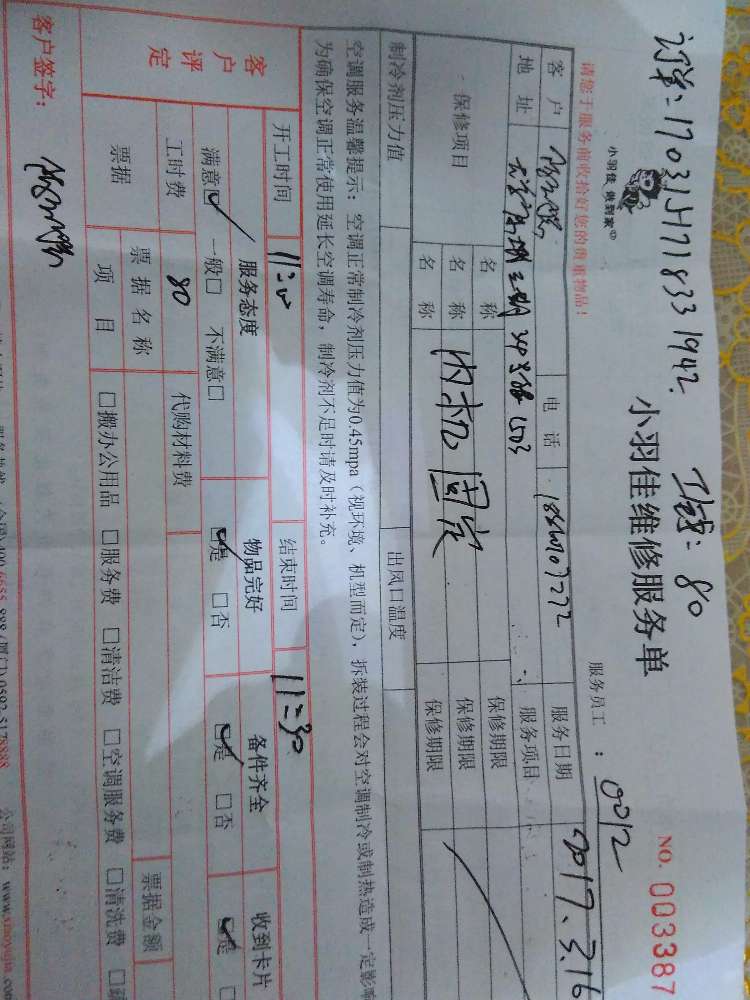 订单:1703154718331942
工钱:80
小羽佳 做到家
小羽佳维修服务单
NO. 003387
请您于服务前收拾好您的贵重物品!
服务员工:0012
客户
电话
服务日期 2017.3.16
地址
1503
服务项目
保修项目
名称
保修期限
名称 内机固定
保修期限
名称
保修期限
制冷剂压力值
出风口温度
空调服务温馨提示:空调正常制冷剂压力值为0.45mpa(视环境、机型而定),拆装过程会对空调制冷或制热造成一定影响
为确保空调正常使用延长空调寿命,制冷剂不足时请及时补充。
开工时间
结束时间 11:30
客户评定
服务态度
物品完好
备件齐全
收到卡片
满意☑ 一般□ 不满意□
☑是 □否
☑是 □否
☑是 □
工时费 80
代购材料费
票据
票据名称
票据金额
项目
□搬办公用品 □服务费 □清洁费 □空调服务费 □清洗费 □
客户签字: